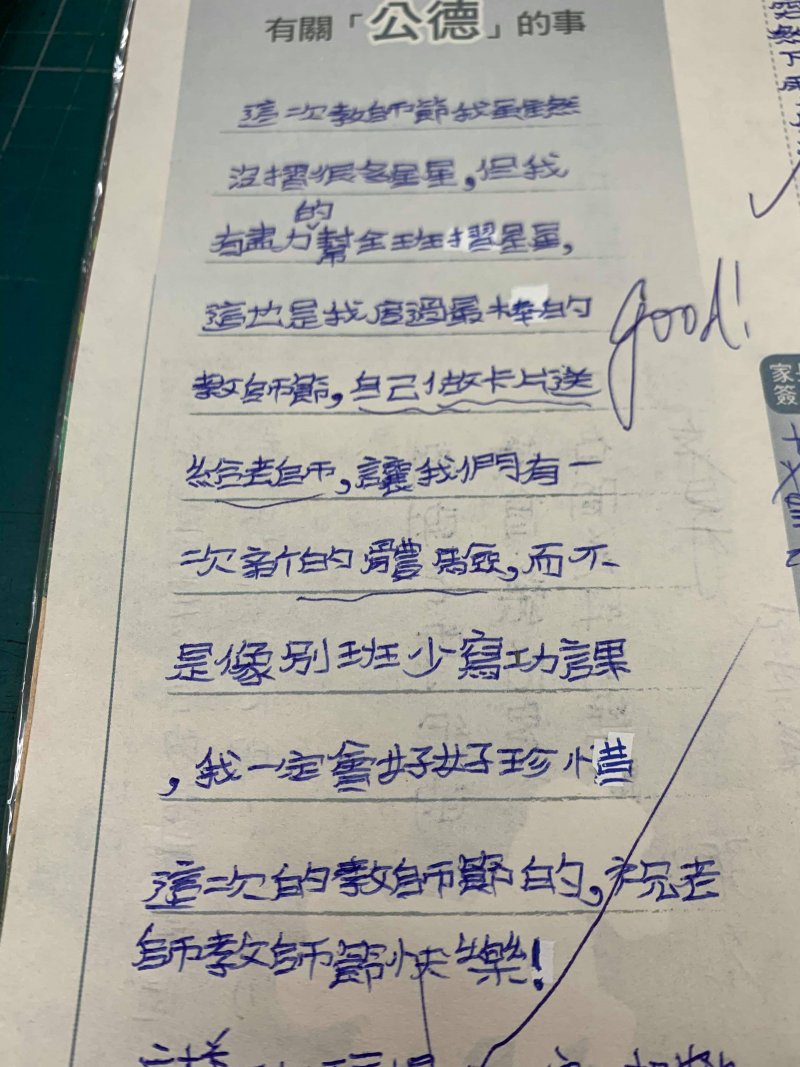 有關「公德」的事
這次教師節我雖然
沒摺很多星星,但我
有盡力的幫全班摺星星,
這也是我度過最棒的
教師節,自己做卡片送
給老師,讓我們有一
次新的體驗,而不
是像別班少寫功課
,我一定會好好珍惜
這次的教師節的,祝老
師教師節快樂!
good!
家
簽